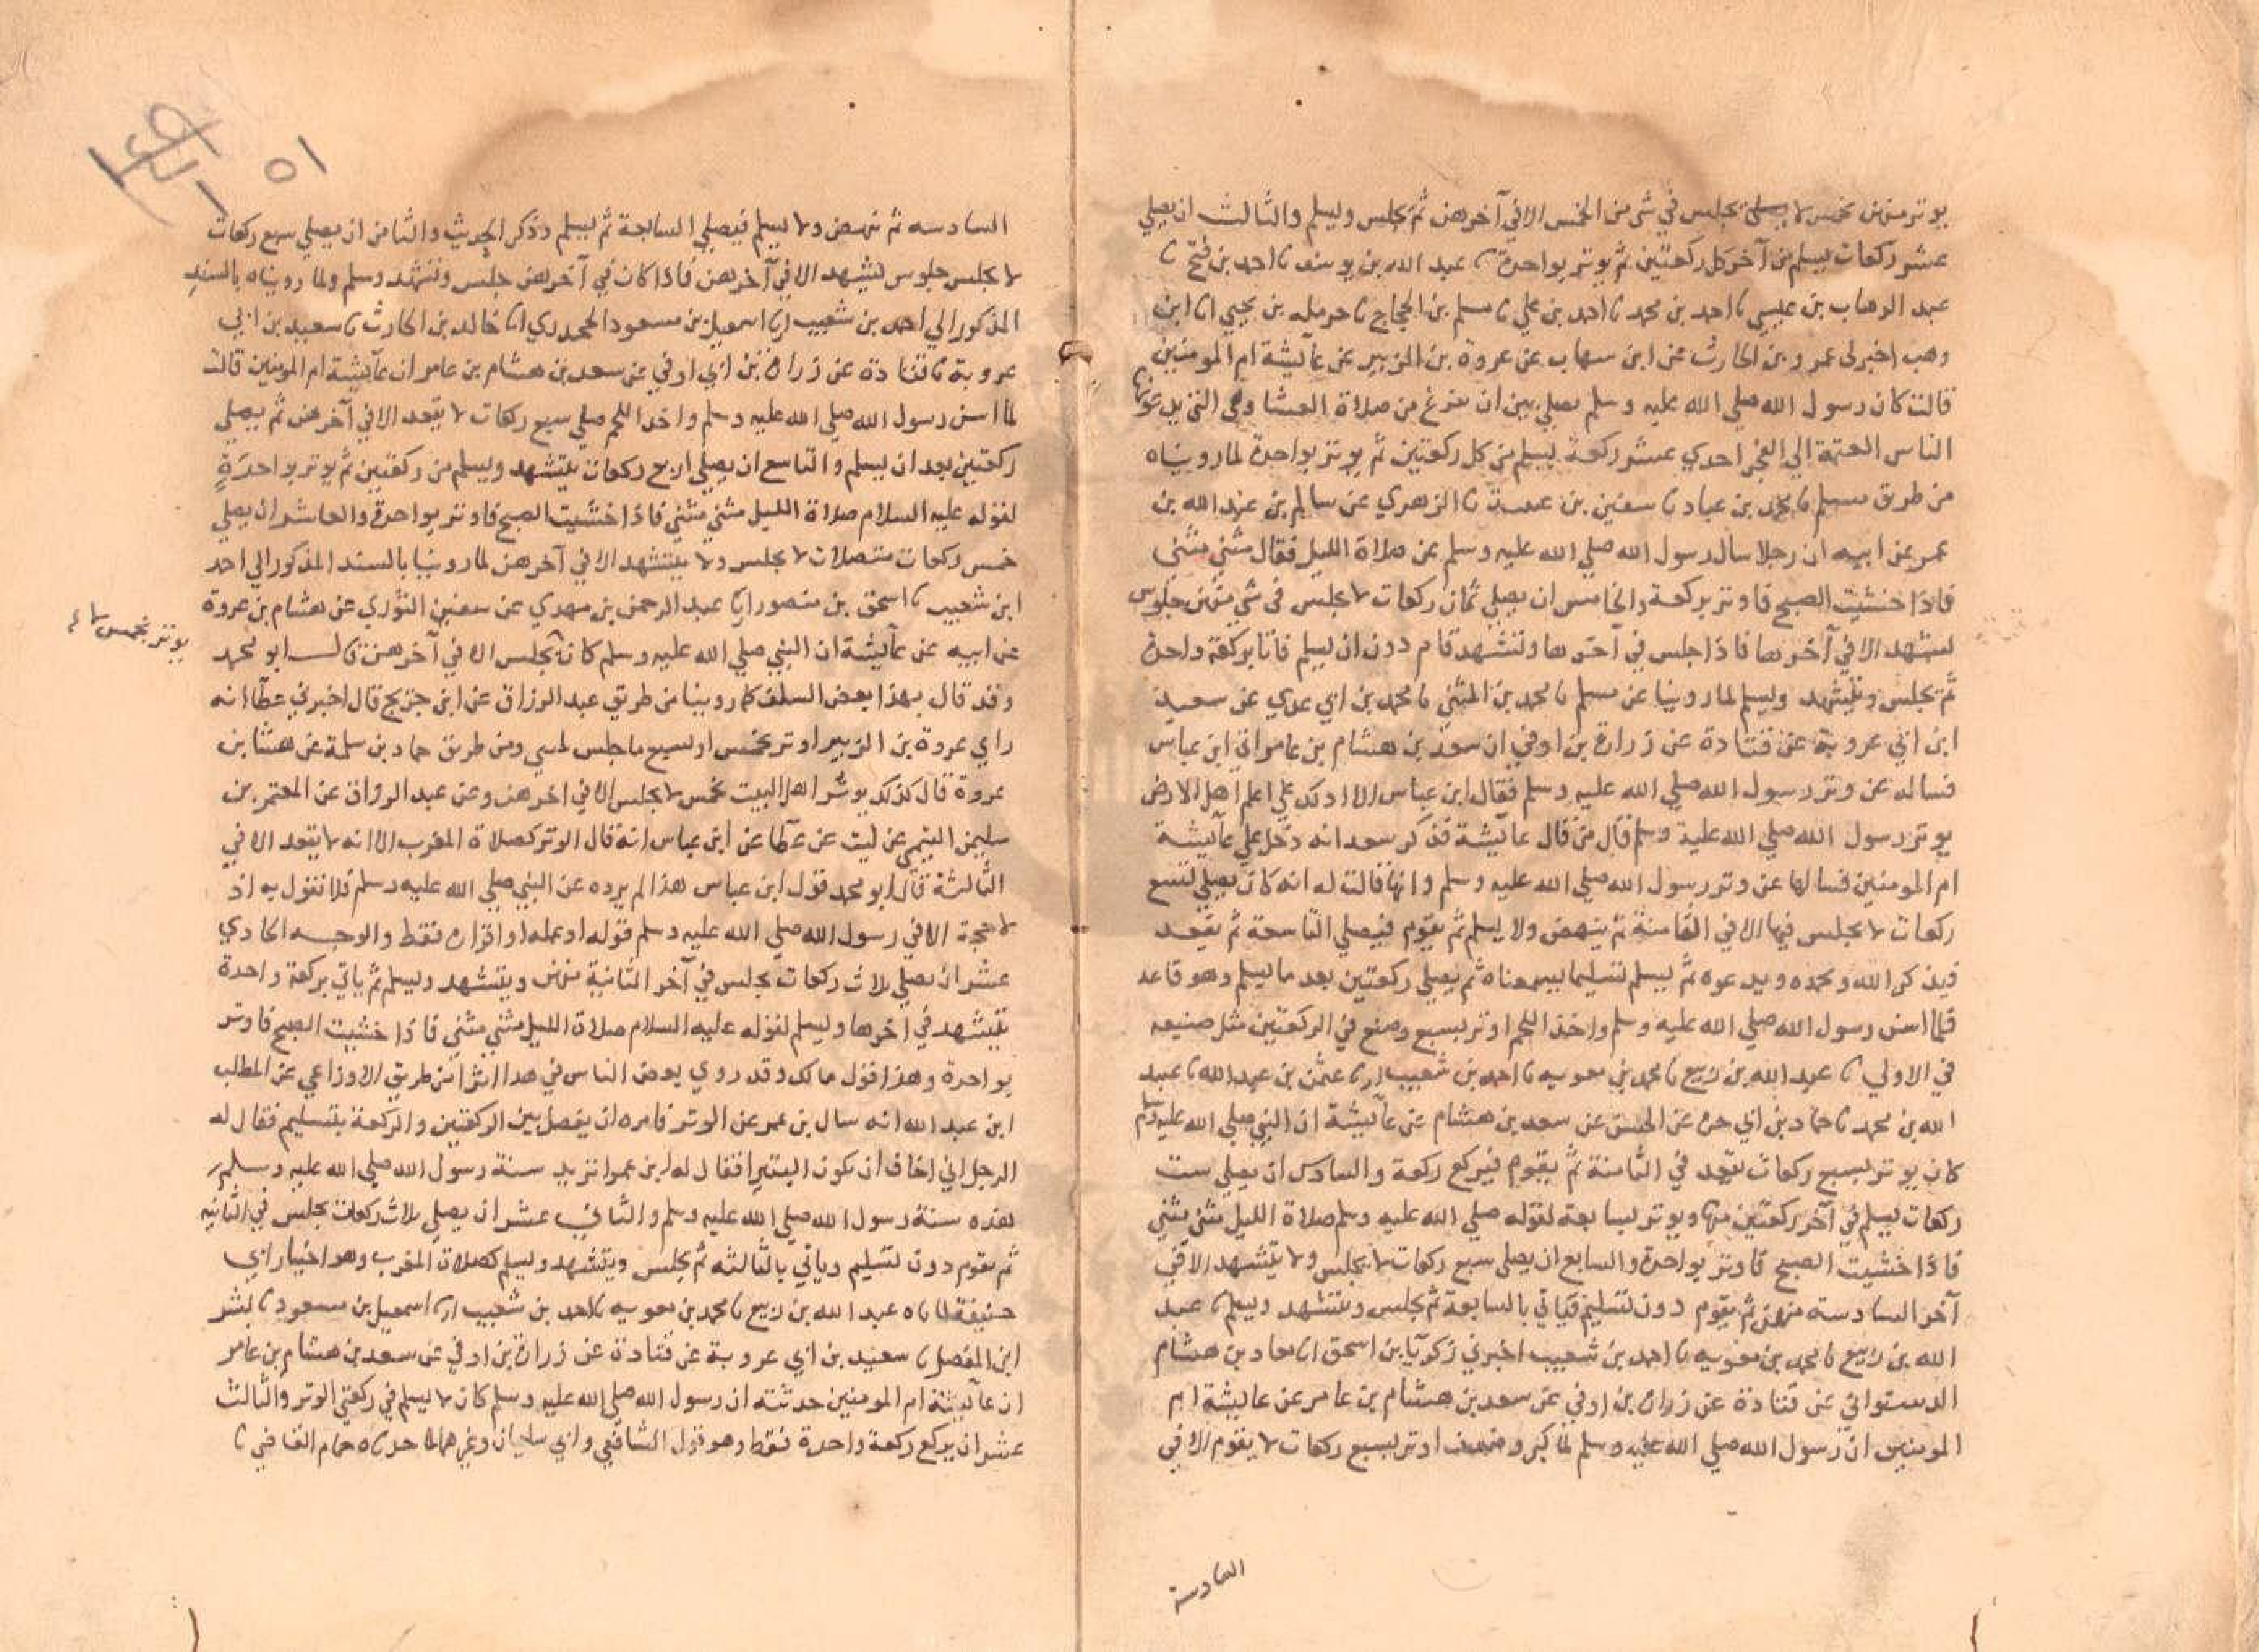 يوتر منهن بخمس لا يجلس في شي من الخمس الا في آخرهن ثم يجلس ويسلم والثالث ان يصلي
عشر ركعات يسلم من آخر كل ركعتين ثم يوتر بواحدة نا عبد الله بن يوسف نا احمد بن فتح نا
عبد الوهاب بن عيسى نا احمد بن محمد نا احمد بن علي نا مسلم بن الحجاج نا حرمله بن يحيى انا ابن
وهب اخبرني عمرو بن الحارث عن ابن شهاب عن عروة بن الزبير عن عآيشة ام المومنين
قالت كان رسول الله صلي الله عليه وسلم يصلي بين ان يفرغ من صلاة العشا وهي التي يدعونها
الناس العتمة الي الفجر احدي عشر ركعة يسلم من كل ركعتين ثم يوتر بواحدة لما رويناه
من طريق مسلم نا محمد بن عباد نا سفين بن عيينة نا الزهري عن سالم بن عبد الله بن
عمر عن ابيه ان رجلا سال رسول الله صلي الله عليه وسلم عن صلاة الليل فقال مثني مثني
فاذا خشيت الصبح فاوتر بركعة والخامس ان يصلي ثمان ركعات لا يجلس في شي منهن جلوس
تشهد الا في آخرها فاذا جلس في آخرها وتشهد قام دون ان يسلم فاتا بركعة واحدة
ثم يجلس ويتشهد ويسلم لما روينا عن مسلم نا محمد بن المثني نا محمد بن ابي عدي عن سعيد
ابن ابي عروبة عن قتادة عن زرارة بن اوفي ان سعد بن هشام بن عامر اتي ابن عباس
فساله عن وتر رسول الله صلي الله عليه وسلم فقال ابن عباس الا ادلك علي اعلم اهل الارض
بوتر رسول الله صلي الله عليه وسلم قال من قال عآيشة فذكر سعد انه دخل علي عآيشة
ام المومنين فسالها عن وتر رسول الله صلي الله عليه وسلم وانها قالت له انه كان يصلي تسع
ركعات لا يجلس فيها الا في الثامنة ثم ينهض ولا يسلم ثم يقوم فيصلي التاسعة ثم يقعد
فيذكر الله ويحمده ويدعوه ثم يسلم تسليما يسمعناه ثم يصلي ركعتين بعد ما يسلم وهو قاعد
فلما اسن رسول الله صلي الله عليه وسلم واخذ اللحم اوتر بسبع وصنع في الركعتين مثل صنيعه
في الاولي نا عبد الله بن ربيع نا محمد بن معويه نا احمد بن شعيب انا عثمن بن عبد الله نا عبيد
الله بن محمد نا حماد بن ابي حرة عن الحسن عن سعد بن هشام عن عآيشة ان النبي صلي الله عليه وسلم
كان يوتر بسبع ركعات يقعد في الثامنة ثم يقوم فيركع ركعة والسادس ان يصلي ست
ركعات يسلم في آخر ركعتين منها ويوتر بسابعة لقوله صلي الله عليه وسلم صلاة الليل مثني مثني
فاذا خشيت الصبح فاوتر بواحدة والسابع ان يصلي سبع ركعات لا يجلس ولا يتشهد الا في
آخر السادسة منهن ثم يقوم دون تسليم فياتي بالسابعة ثم يجلس ويتشهد ويسلم نا عبد
الله بن ربيع نا محمد بن معويه نا احمد بن شعيب اخبرني زكريا بن اسحق انا معاد بن هشام
الدستواني عن قتادة عن زرارة بن اوفي عن سعد بن هشام بن عامر عن عايشة ام
المومنين ان رسول الله صلي الله عليه وسلم لما كبر وضعف اوتر بسبع ركعات لا يقوم الا في
السادسة
٥١
السادسه ثم ينهض ولا يسلم فيصلي السابعة ثم يسلم وذكر الحديث والثامن ان يصلي سبع ركعات
لا يجلس جلوس تشهد الا في آخرهن فاذا كان في آخرهن جلس وتشهد وسلم ولما رويناه بالسند
المذكور الي احمد بن شعيب انا اسمعيل بن مسعود الجحدري انا خالد بن الحارث نا سعيد بن ابي
عروبة نا قتادة عن زرارة بن ابي اوفي عن سعد بن هشام بن عامر ان عآيشة ام المومنين قالت
لما اسن رسول الله صلي الله عليه وسلم واخذ اللحم صلي سبع ركعات لا يقعد الا في آخرهن ثم يصلي
ركعتين بعد ان يسلم والتاسع ان يصلي اربع ركعات يتشهد ويسلم من ركعتين ثم يوتر بواحدةٍ
لقوله عليه السلام صلاة الليل مثني مثني فاذا خشيت الصبح فاوتر بواحدة والعاشر ان يصلي
خمس ركعات متصلات لا يجلس ولا يتشهد الا في آخرهن لما روينا بالسند المذكور الي احمد
ابن شعيب نا اسحق بن منصور انا عبد الرحمن بن مهدي عن سفين الثوري عن هشام بن عروة
عن ابيه عن عآيشة ان النبي صلي الله عليه وسلم كان يجلس الا في آخرهن قال ابو محمد
يوتر بخمس لا
وقد قال بهذا بعض السلف كما روينا من طريق عبد الرزاق عن ابن جريج قال اخبرني عطا انه
راي عروة بن الزبير اوتر بخمس او بسبع ما جلس لمثني ومن طريق حماد بن سلمة عن هشام بن
عروة قال كذلك يوتر اهل البيت بخمس لا يجلس الا في اخرهن وعن عبد الرزاق عن المعتمر بن
سليمن التيمي عن ليث عن عطا عن ابن عباس انه قال الوتر كصلاة المغرب الا انه لا يقعد الا في
الثالثة قال ابو محمد قول ابن عباس هذا لم يرده عن النبي صلي الله عليه وسلم فلا نقول به اذ
لا حجة الا في رسول الله صلي الله عليه وسلم قوله او عمله او اقراره فقط والوجه الحادي
عشر ان يصلي ثلاث ركعات يجلس في آخر الثانية منهن ويتشهد ويسلم ثم ياتي بركعة واحدة
يتشهد في اخرها ويسلم لقوله عليه السلام صلاة الليل مثني مثني فاذا خشيت الصبح فاوتر
بواحدة وهذا قول مالك وقد روي بعض الناس في هذا اثرا من طريق الاوزاعي عن المطلب
ابن عبد الله انه سال بن عمر عن الوتر فامره ان يفصل بين الركعتين والركعة بتسليم فقال له
الرجل اني اخاف ان تكون البتيرا فقال له ابن عمر اتريد سنة رسول الله صلي الله عليه وسلم
هذه سنة رسول الله صلي الله عليه وسلم والثاني عشر ان يصلي ثلاث ركعات يجلس في الثانيه
ثم يقوم دون تسليم وياتي بالثالثه ثم يجلس ويتشهد ويسلم كصلاة المغرب وهو اختيار ابي
حنيفة لما ناه عبد الله بن ربيع نا محمد بن معويه نا احمد بن شعيب انا اسمعيل بن مسعود نا بشر
ابن المفضل نا سعيد بن ابي عروبة عن قتادة عن زرارة بن اوفي عن سعد بن هشام بن عامر
ان عآيشة ام المومنين حدثته ان رسول الله صلي الله عليه وسلم كان لا يسلم في ركعتي الوتر والثالث
عشر ان يركع ركعة واحدة فقط وهو قول الشافعي وابي سليمان وغيرهما لما حدثناه حمام القاضي نا